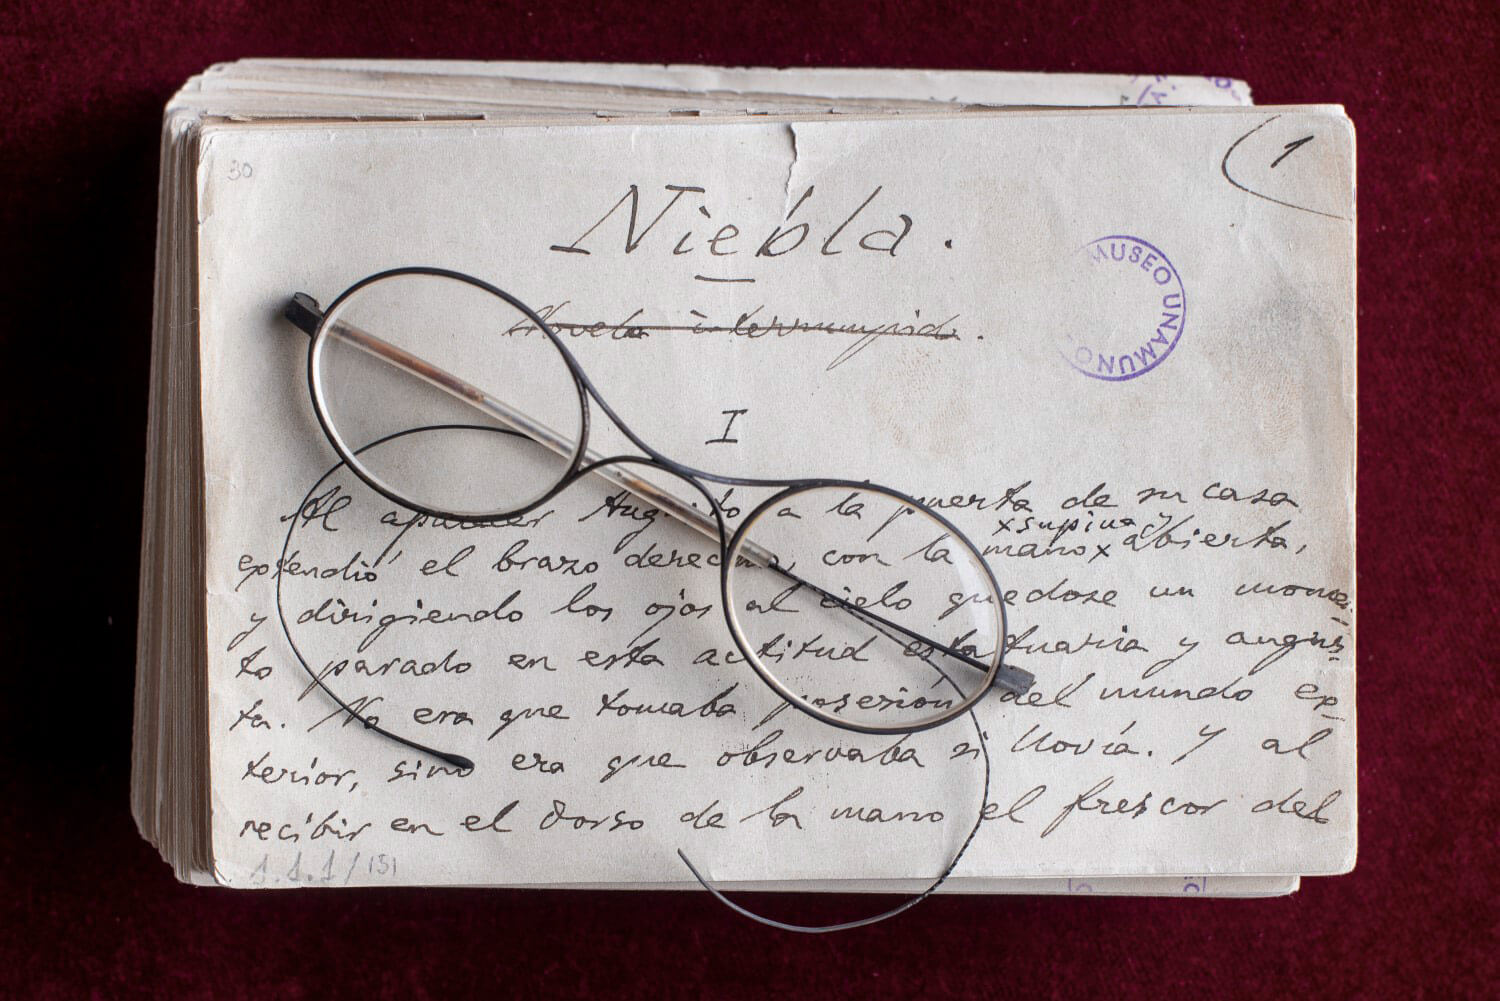 30
1
Niebla.
MUSEO UNAMUNO
Novela interrumpida.
I
Al aparecer Augusto a la puerta de su casa
x supina y
extendió el brazo derecho, con la mano x abierta,
y dirigiendo los ojos al cielo quedose un momen-
to parado en esta actitud estatuaria y augus-
ta. No era que tomaba posesión del mundo ex-
terior, sino era que observaba si llovía. Y al
recibir en el dorso de la mano el frescor del
1.1.1/131